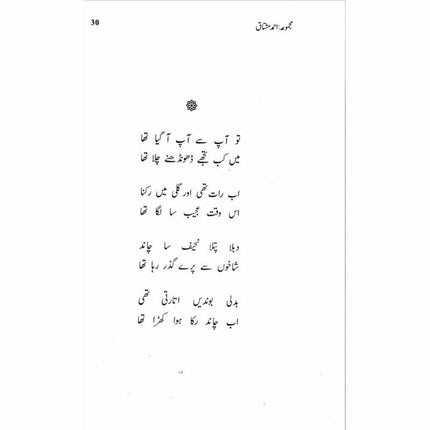 مجموعہ: احمد مشتاق
30
تو آپ سے آپ آ گیا تھا
میں کب تجھے ڈھونڈھنے چلا تھا
اب رات تھی اور گلی میں رکنا
اس وقت عجیب سا لگا تھا
دبلا پتلا نحیف سا چاند
شاخوں سے پرے گذر رہا تھا
بدلی بوندیں اتارتی تھی
اب چاند رکا ہوا کھڑا تھا